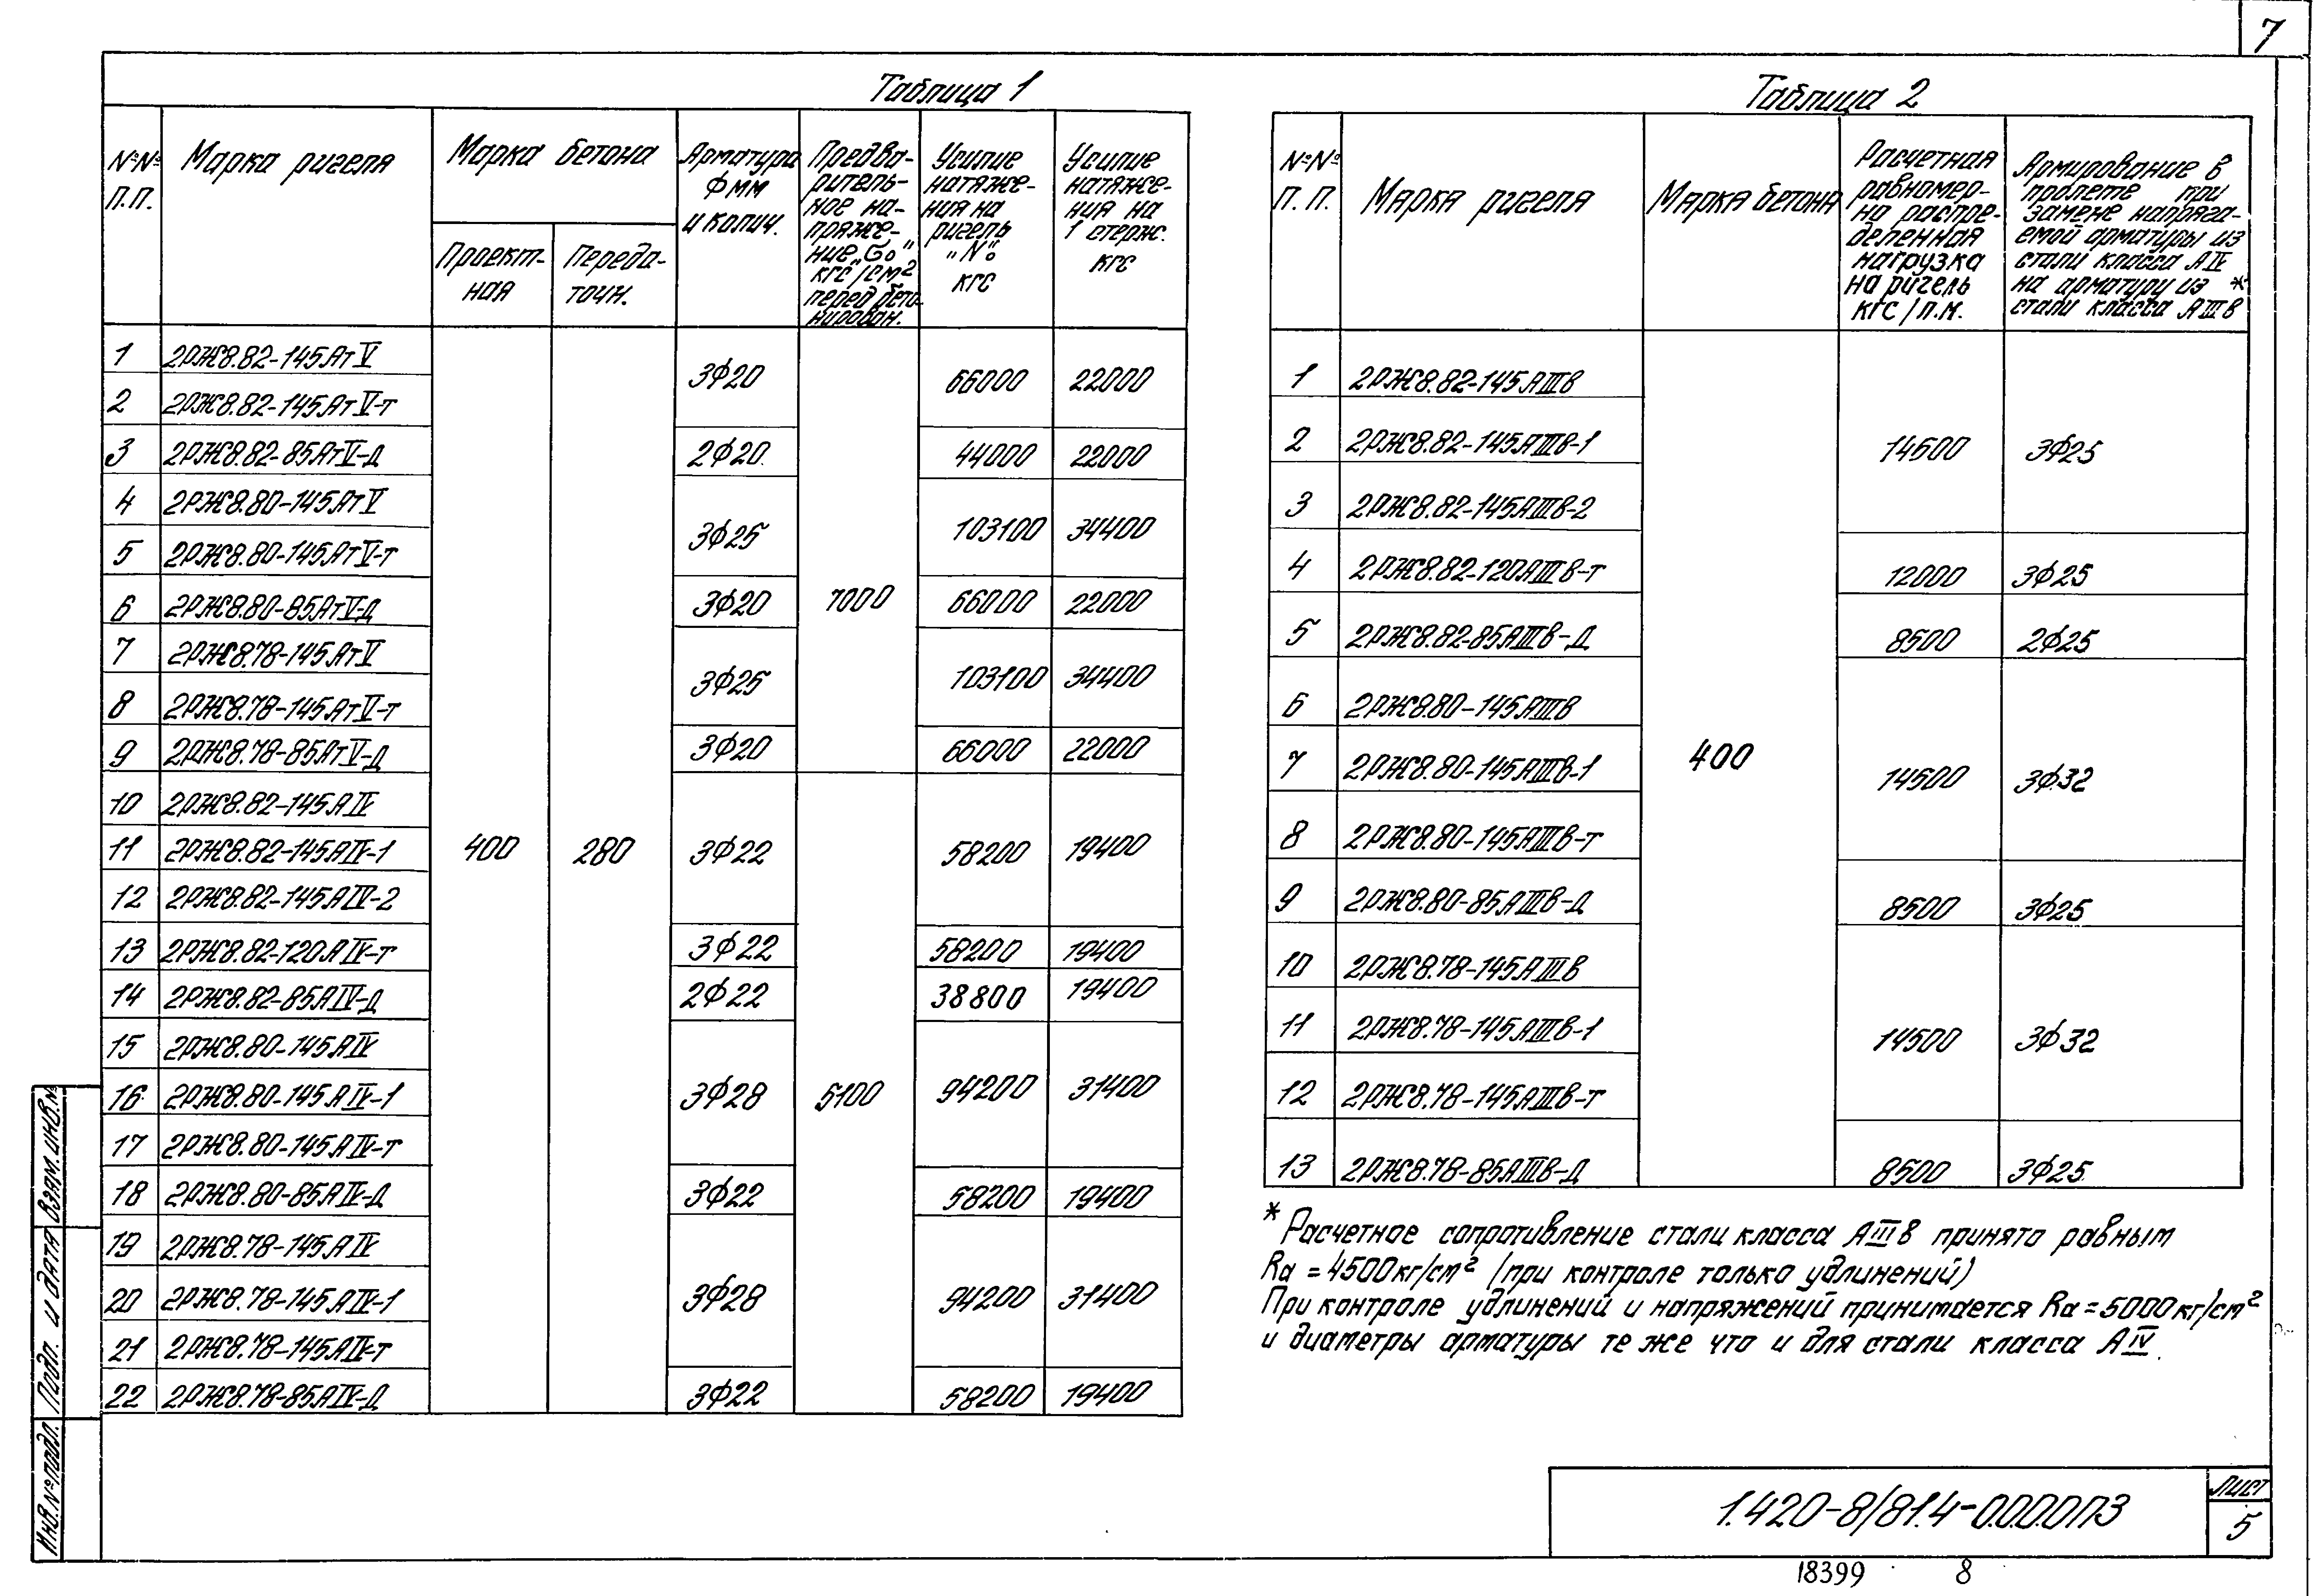 7
Таблица 1
№№ п.п.
Марка ригеля
Марка бетона
Проект-ная
Переда-точн.
Арматура Ф мм и колич.
Предва-ритель-ное на-пряже-ние „Gо" кгс/см² перед бето-нирован.
Усилие натяже-ния на ригель „N" кгс
Усилие натяже-ния на 1 стерж. кгс
1 2РЖ8.82-145АтV 3Ф20 66000 22000
2 2РЖ8.82-145АтV-т
3 2РЖ8.82-85АтV-д 2Ф20 44000 22000
4 2РЖ8.80-145АтV 3Ф25 103100 34400
5 2РЖ8.80-145АтV-т
6 2РЖ8.80-85АтV-д 3Ф20 7000 66000 22000
7 2РЖ8.78-145АтV 3Ф25 103100 34400
8 2РЖ8.78-145АтV-т
9 2РЖ8.78-85АтV-д 3Ф20 66000 22000
10 2РЖ8.82-145АIV
11 2РЖ8.82-145АIV-1 400 280 3Ф22 58200 19400
12 2РЖ8.82-145АIV-2
13 2РЖ8.82-120АIV-т 3Ф22 58200 19400
14 2РЖ8.82-85АIV-д 2Ф22 38800 19400
15 2РЖ8.80-145АIV
16 2РЖ8.80-145АIV-1 3Ф28 5100 94200 31400
17 2РЖ8.80-145АIV-т
18 2РЖ8.80-85АIV-Д 3Ф22 58200 19400
19 2РЖ8.78-145АIV
20 2РЖ8.78-145АIV-1 3Ф28 94200 31400
21 2РЖ8.78-145АIV-т
22 2РЖ8.78-85АIV-Д 3Ф22 58200 19400
Таблица 2
№№ п.п.
Марка ригеля
Марка бетона
Расчетная равномер-но распре-деленная нагрузка на ригель кгс/п.м.
Армирование в пролете при замене напряга-емой арматуры из стали класса АIV на арматуру из * стали класса АIIIв
1 2РЖ8.82-145АIIIв
2 2РЖ8.82-145АIIIв-1 14500 3Ф25
3 2РЖ8.82-145АIIIв-2
4 2РЖ8.82-120АIIIв-т 12000 3Ф25
5 2РЖ8.82-85АIIIв-Д 8500 2Ф25
6 2РЖ8.80-145АIIIв
7 2РЖ8.80-145АIIIв-1 400 14500 3Ф32
8 2РЖ8.80-145АIIIв-т
9 2РЖ8.80-85АIIIв-д 8500 3Ф25
10 2РЖ8.78-145АIIIв
11 2РЖ8.78-145АIIIв-1 14500 3Ф32
12 2РЖ8.78-145АIIIв-т
13 2РЖ8.78-85АIIIв-Д 8500 3Ф25
* Расчетное сопротивление стали класса АIIIв принято равным
Rа = 4500кг/см² (при контроле только удлинений)
При контроле удлинений и напряжений принимается Rа = 5000кг/см²
и диаметры арматуры те же что и для стали класса АIV.
Инв.№подл. Подп. и дата Взам.инв.№
1.420-8/81.4-0.0.0.0ПЗ
Лист
5
18399 8